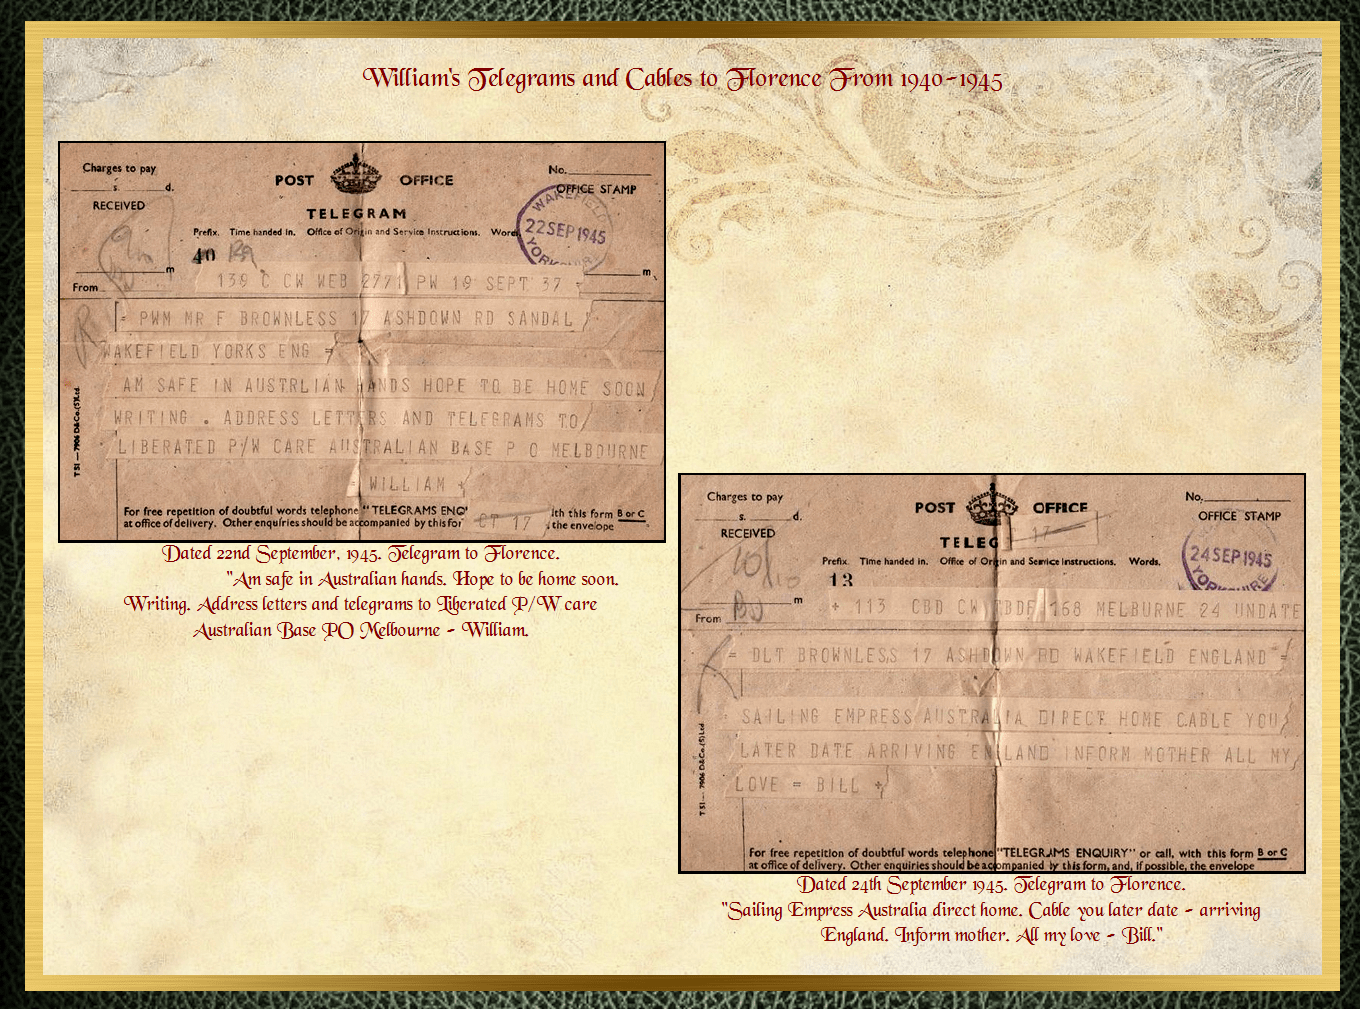 William's Telegrams and Cables to Florence From 1940-1945
Charges to pay
s. d.
RECEIVED
POST OFFICE
TELEGRAM
No.
OFFICE STAMP
WAKEFIELD
22 SEP 1945
YORKSHIRE
Prefix. Time handed in. Office of Origin and Service Instructions. Words
40
m
m
From
139 C CW WEB 2771 PW 19 SEPT 37
= PWM MR F BROWNLESS 17 ASHDOWN RD SANDAL
WAKEFIELD YORKS ENG =
AM SAFE IN AUSTRLIAN HANDS HOPE TO BE HOME SOON
WRITING . ADDRESS LETTERS AND TELEGRAMS TO
LIBERATED P/W CARE AUSTRALIAN BASE P O MELBOURNE
= WILLIAM +
TSI — 7906 D&Co.(5)Ltd.
For free repetition of doubtful words telephone " TELEGRAMS ENQ
at office of delivery. Other enquiries should be accompanied by this for
CT 17
ith this form B or C
the envelope
Dated 22nd September, 1945. Telegram to Florence.
"Am safe in Australian hands. Hope to be home soon.
Writing. Address letters and telegrams to Liberated P/W care
Australian Base PO Melbourne - William.
Charges to pay
s. d.
RECEIVED
POST OFFICE
TELEG
17
No.
OFFICE STAMP
24 SEP 1945
YORKSHIRE
Prefix. Time handed in. Office of Origin and Service Instructions. Words.
13
m
From
+ 113 CBD CW CBDF 168 MELBURNE 24 UNDATE
= DLT BROWNLESS 17 ASHDOWN RD WAKEFIELD ENGLAND =
SAILING EMPRESS AUSTRALIA DIRECT HOME CABLE YOU
LATER DATE ARRIVING ENGLAND INFORM MOTHER ALL MY
LOVE = BILL +
TSI — 7906 D&Co.(5)Ltd
For free repetition of doubtful words telephone "TELEGRAMS ENQUIRY" or call, with this form B or C
at office of delivery. Other enquiries should be accompanied by this form, and, if possible, the envelope
Dated 24th September 1945. Telegram to Florence.
"Sailing Empress Australia direct home. Cable you later date - arriving
England. Inform mother. All my love - Bill."